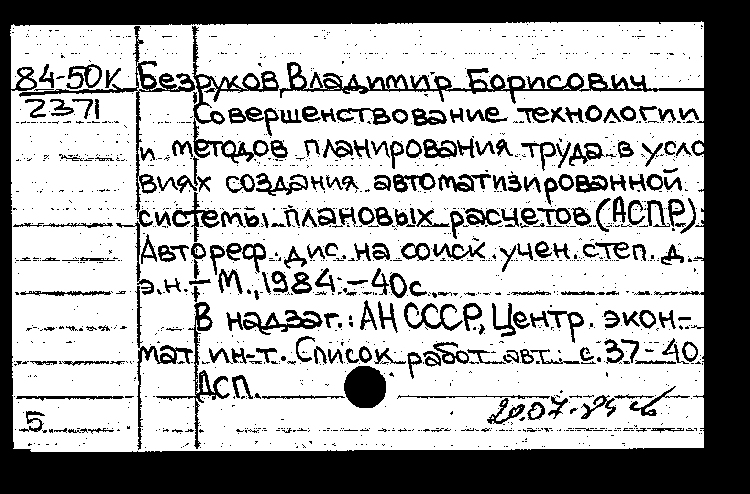 84-50К Безруков Владимир Борисович
2371 Совершенствование технологии
и методов планирования труда в усло
виях создания автоматизированной
системы плановых расчетов (АСПР):
Автореф. дис. на соиск. учен. степ. д.
э.н. - М., 1984. - 40с.
В надзаг.: АН СССР, Центр. экон-
мат. ин-т. Список работ авт.: с. 37-40.
ДСП.
5